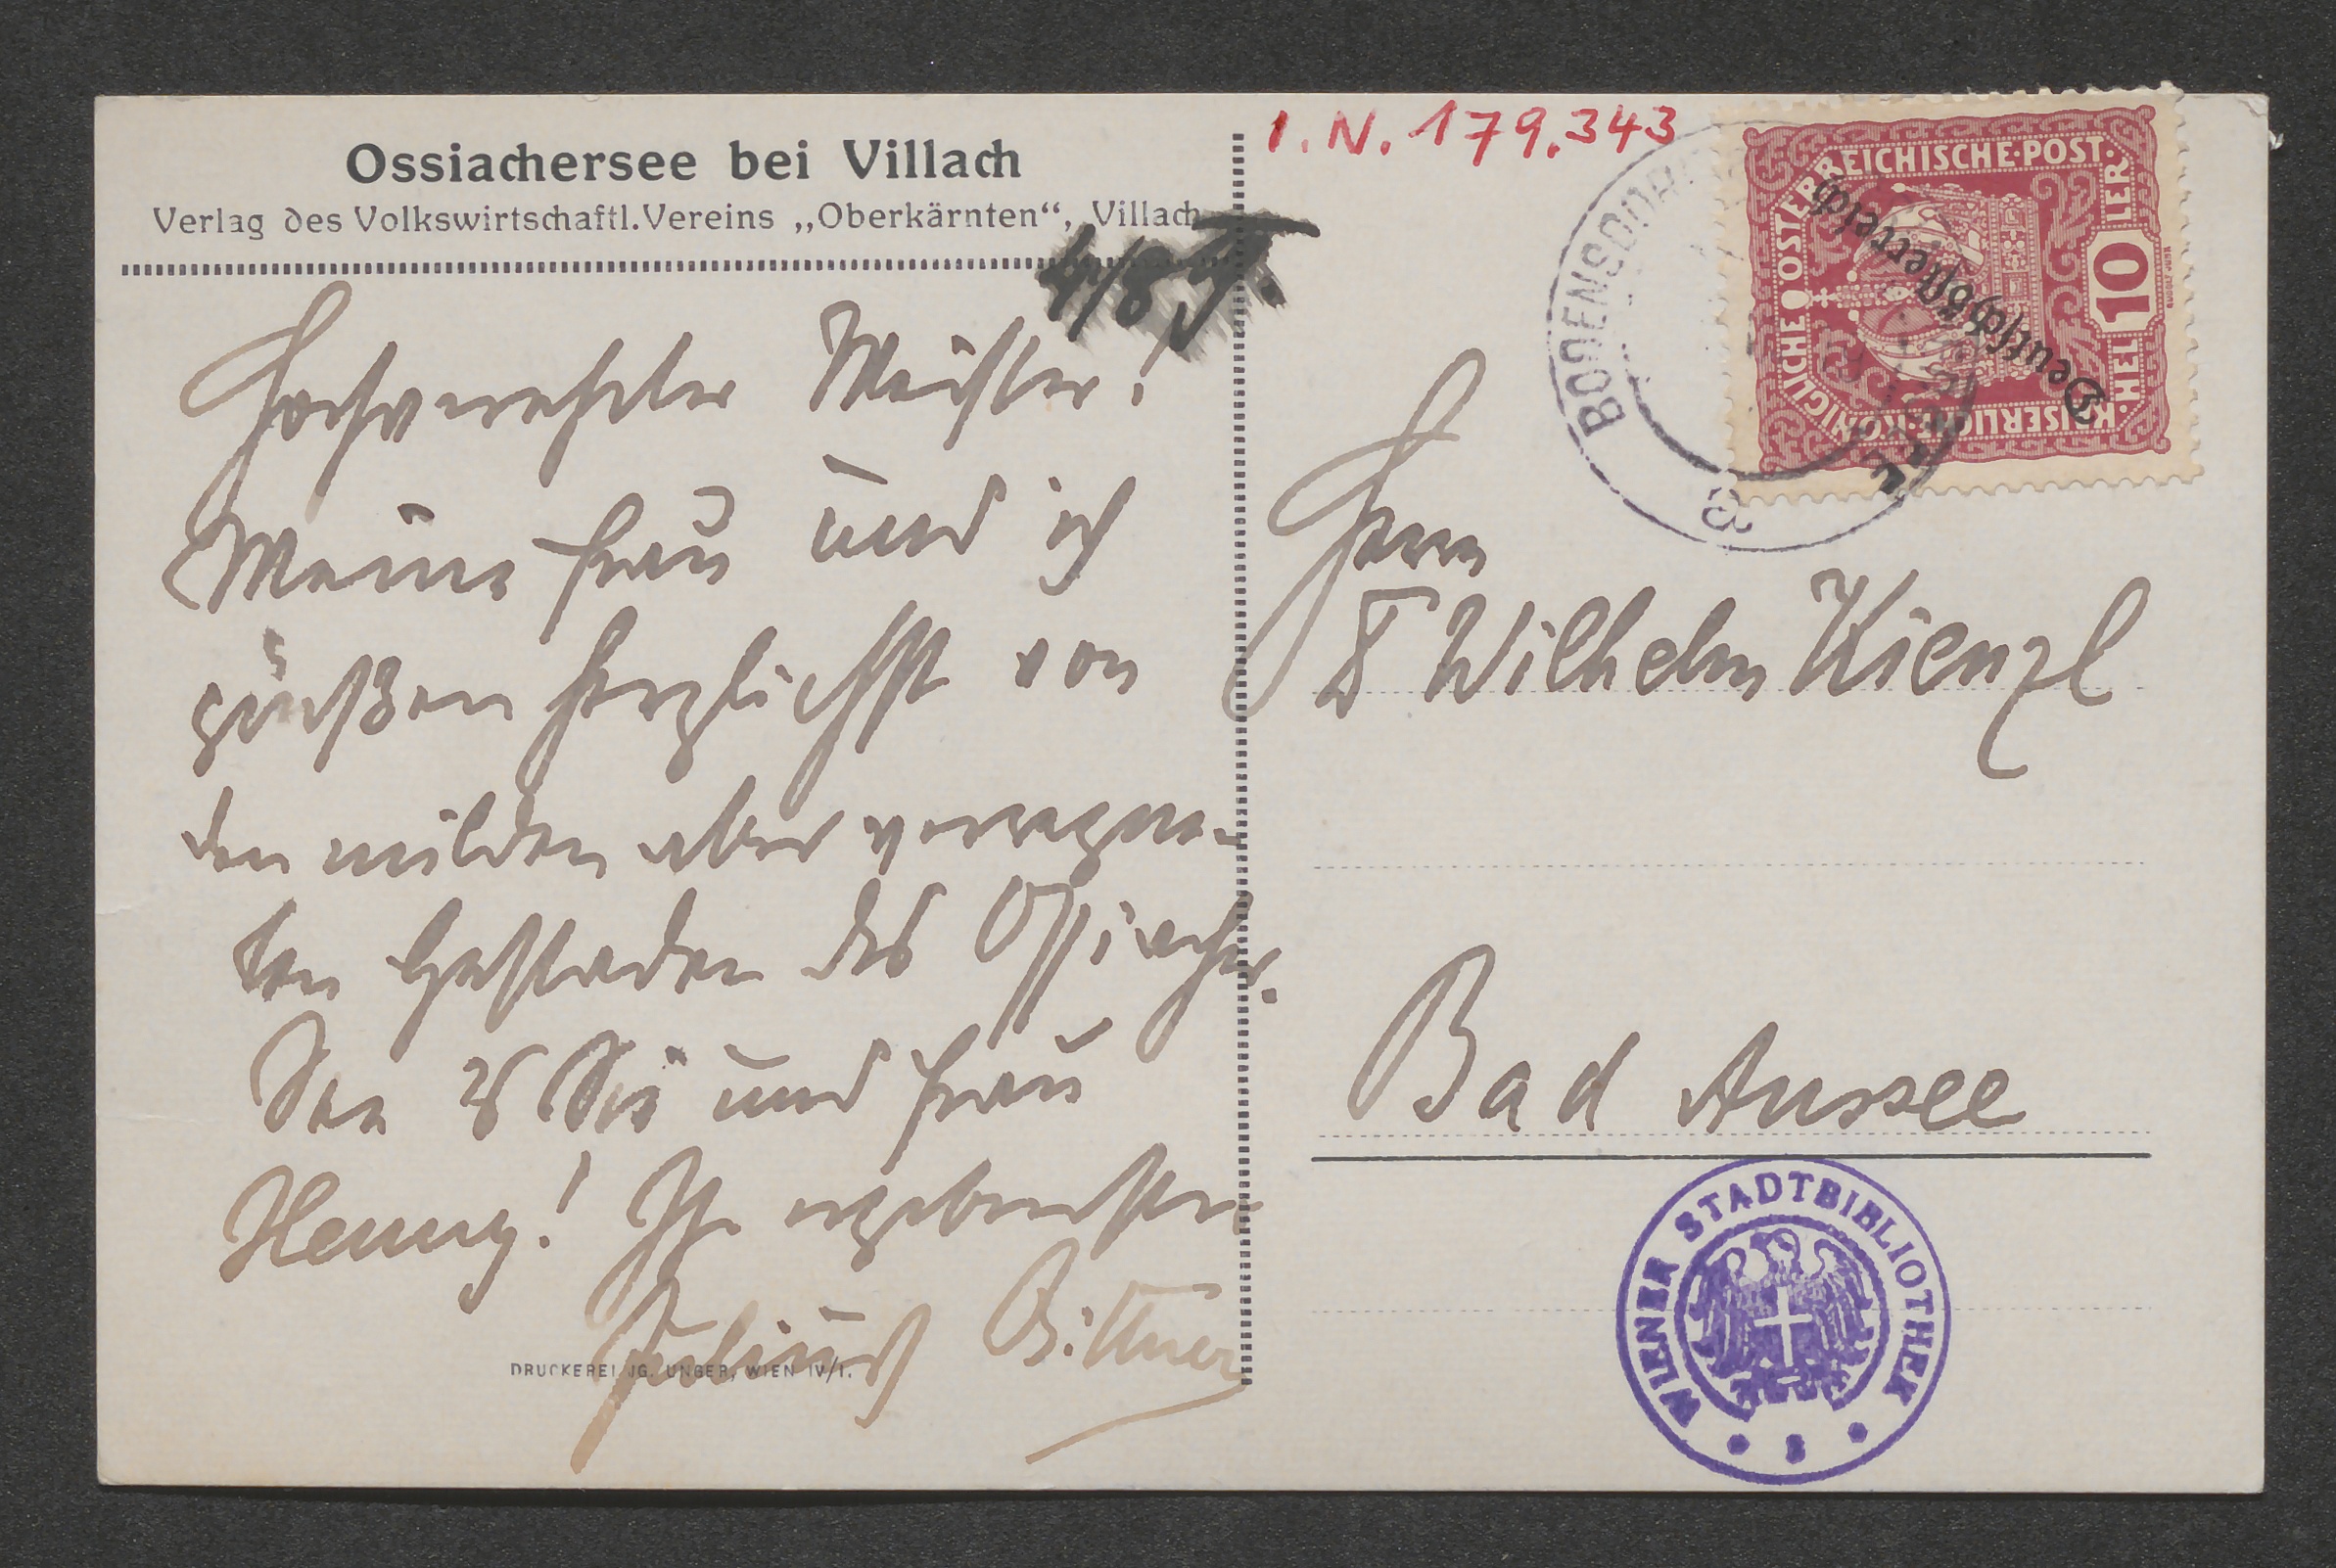 Ossiachersee bei Villach
Verlag des Volkswirtschaftl.Vereins „Oberkärnten“, Villach
4/8
Hochverehrter Meister!
Meine Frau und ich
grüßen herzlichst von
den milden aber verregne-
ten Gestaden des Ossiacher
See's Sie und Frau
Henny! Ihr ergebenster
Julius Bittner
DRUCKEREI JG. UNGER, WIEN IV/1.
I.N. 179.343
BODENSDORF
KAISERLICHE KÖNIGLICHE ÖSTERREICHISCHE POST
HELLER 10
Deutschösterreich
RUDOLF JUNK
Herrn
Dr Wilhelm Kienzl
Bad Aussee
WIENER STADTBIBLIOTHEK